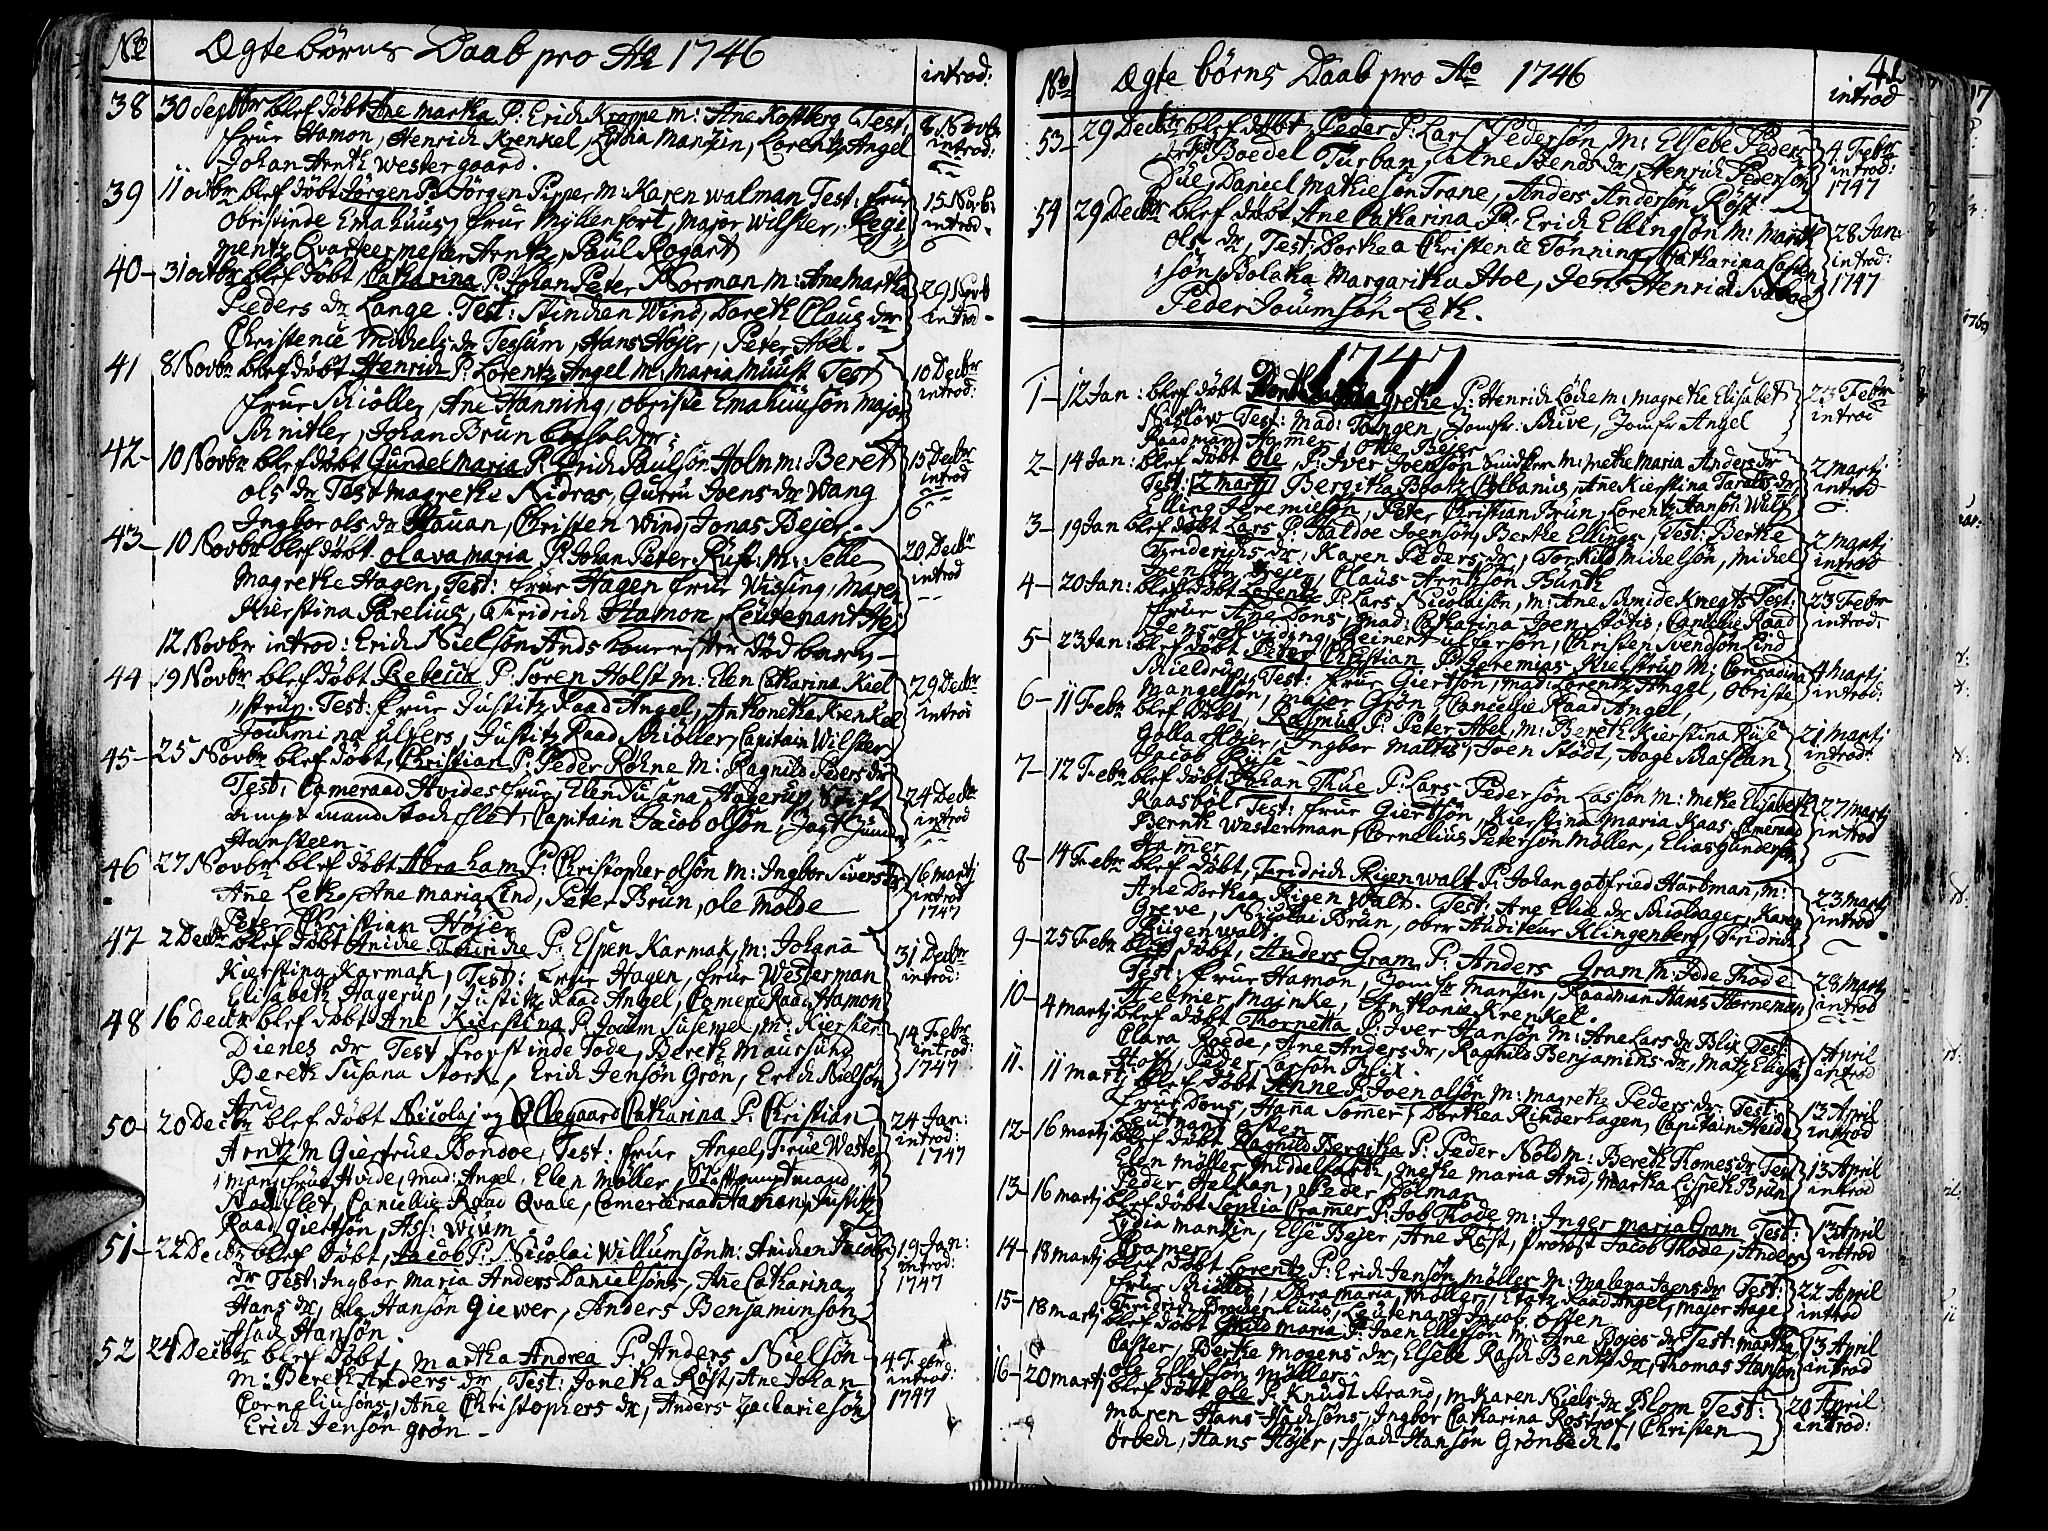 No
Ægte børns Daab pro Ao 1746
introd:
38 30 Septbr blef døbt Ane Martha P: Erich Kroppe M: Ane Kolsberg Test:
frue Hamon, Henrich Krenkel, Lydia Manzin, Lorentz Angel
Johan Arnth Westergaard.
8 Novbr
introd:
39 11 octbr blef døbt Jørgen P: Jørgen Pipper M: Karen Walman Test: frue
Obristinde Emahuus, frue Myllenfort, Major Wilster, Regi
mentz Qvarteermester Arntz, Paul Rogart
15 Novb:
introd
40 - 31 octbr blef døbt, Catharina P: Johan Peter Norman M: Ane Martha
Peders dr Lange. Test: Stinchen Wind, Doreth Claus dr
Christence Michels dr Tessum, Hans Højer, Peter Abel.
29 Novb
introd
41 8 Novbr blef døbt Henrich P: Lorentz Angel M: Maria Must Test
frue Schiøller, Ane Hanning, Obriste Emahusøn Major
Schnitler, Johan Brun
10 Decbr
introd:
42 - 10 Novbr blef døbt Gundel Maria P: Erich Paulsøn Holm M: Beret
Ols dr Test Magrethe Nidros, Guru Joens dr Wang
Ingbor Ols dr Stauan, Christen Wind, Jonas Bejer.
15 Decbr
introd
43 - 10 Novbr blef døbt Olava Maria P: Johan Peter Rust: M: Selle
Magrethe Hagen, Test: frue Hagen frue Wising, Maren
Kierstina Parelius, Fridrich Hamon, Leutenant Hej
20 Decbr
introd
12 Novbr introd: Erich Nielsøn Ands kone efter død barn -
44 19 Novbr blef døbt Rebecca P: Søren Holst M: Elen Catharina Kiel
strup. Test: frue Justitz Raad Angel, Anthonetha Krenkel
Joumina Ulfers, Justitz Raad Schiøller, Capitain Wilster
29 Decbr
introd
45 - 25 Novbr blef døbt, Christian P: Peder Røhne M: Ragnild Peders dr
Test: Cameraad Hvides frue, Elen Susana Hagerup, Stift
ampt mand Stochflet, Capitain Jacob Olsøn, Jagt Junker
Hansteen -
24 Decbr
introd
46 27 Novbr blef døbt Abraham P: Christopher Olsøn M: Ingbor Sivers dr
Ane Leth, Ane Maria Lind, Peter Brun, Ole Molde
Peter Christian Højer
16 Martj
introd
1747
47 - 2 Decbr blef døbt Aniche Fridriche P: Espen Karmak, M: Johana
Kierstina Karmak, Test: frue Hagen, frue Westerman
Elisabeth Hagerup, Justitz Raad Angel, Comerce Raad Hamon
31 Decbr
introd:
48 16 Decbr blef døbt Ane Kierstina P: Joum Susemel, M: Kiersten
Dienes dr Test Propstinde Tode, Bereth Maursund
Bereth Susana Stork, Erich Jensøn Grøn, Erich Nielsøn
And
14 Febr
introd:
1747
50 - 20 Decbr blef døbt Nicolaj og Øllegaard Catharina P: Christian
Arntz M Giertrue Bondoe, Test: frue Angel, Frue Wester
man, frue Hvide, Mad: Angel, Elen Møller, Stiftampt mand
Stochflet, Cancellie Raad Qvale, Comerceraad Hamon, Justitz
Raad Giertsøn, Ass: Wium
24 Jan:
introd:
1747
51 - 22 Decbr blef døbt, Jacob P: Nicolai Willumsøn M: Anichen Jacobs
dr Test: Ingbor Maria Anders Danielsøns, Ane Catharina
Hans dr, Ole Hansøn Giewer, Anders Benjaminsøn
Isach Hansøn.
19 Jan:
introd:
1747
52 24 Decbr blef døbt, Martha Andrea P: Anders Nielsøn
M: Bereth Anders dr Test: Jonetha Røst, Ane Johan
Corneliusøns, Ane Christophers dr, Anders Zachariesøn
Erich Jensøn Grøn -
4 Febr
introd:
1747
No
Ægte børns Daab pro Ao 1746
introd
53 - 29 Decbr blef døbt, Peder P: Lars Pedersøn M: Elsebe Peders
dr Test Boedel Turban, Ane Bends dr, Henrich Pedersøn
Due, Daniel Mathiesøn Trane, Anders Andersøn Røst
4 Febr
introd:
1747
54 29 Decbr blef døbt Ane Catharina P: Erich Ellingsøn M: Marith
Ols dr, Test: Dorthea Christence Tønning, Catharina Casten
søn, Bolatha Margaritha Hoe, Jens Henrich Svaboe
Peder Joumsøn Leth.
28 Jan:
introd:
1747
1747
1 - 12 Jan: blef døbt Magrethe P: Henrich Løche M: Magrethe Elisabet
Nisløw Test: Mad: Tongen, Jomfr: Buve, Jomfr Angel
Raadmand Hamer, Otte Bejer
23 Febr
introd
2 - 14 Jan: blef døbt Ole, P: Iver Joensøn M: Methe Maria Anders dr
Test: 2 Martj Bergitha Baatz Colbanius, Ane Kierstina Tarals dr
Elling Jeremiesøn, Peter Christian Brun, Lorentz Hansøn Wulf
2 Martj
introd
3 - 19 Jan blef døbt Lars P: Haldoe Joensøn, Berthe Ellings Test: Berthe
Friderichs dr, Karen Peders dr, Torkild Michelsøn, Michel
Joensøn Bejer, Claus Arntsøn Bunth
2 Martj
introd
4 - 20 Jan: blef døbt Lorentz P: Lars Nicolaisøn, M: Ane Schmideknegts Test:
Frue Ane Dons, Mad: Catharina Joen Støtis, Cancelie Raad
Jens Hvidens, Reinert Ulfersøn, Christen Svendsøn Lind
23 Febr
introd:
5 - 23 Jan: blef døbt Peter Christian P: Jeremias Kielstrup M: Conradina
Schieldrup, Test: frue Giertsøn, Mad: Lorentz Angel, Obriste
Mangelsøn, Major Grøn, Cancelie Raad Angel,
4 Martj
introd:
6 - 11 Febr blef døbt, Rasmus P: Peter Abel, M: Bereth Kierstina Ruse
Golla Højer, Ingbor Maltis, Joen Stødt, Hage Bastian
Jacob Ruse -
21 Martj
introd:
7 - 12 Febr blef døbt Johan Thue P: Lars Pedersøn Lassøn M: Methe Elisabeth
Kaasbøl Test: frue Giertsøn, Kierstina Maria Kaas, Cameraad
Bernth Westerman, Cornelius Petersøn Møller, Elias Gundersøn
Hamer
27 Martj
introd
8 - 14 Febr blef døbt, Fridrich Rigenwalt P: Johan Gotfried Hartman, M:
Ane Dorthea Rigen Walt. Test: Ane Elie dr Schioldager, Karen
Greve, Nicolai Brun, Ober Auditeur Klingenberg, Fridrich
Rigenwalt.
23 Martj
introd
9 - 25 Febr blef døbt, Anders Gram P: Anders Gram M: Tode Thode
Test: frue Hamon, Jomfr Manzin, Raadman Hans Hornemon
Helmer, Mainke, Anthonie Krenkel.
28 Martj
introd
10 - 4 Martj blef døbt Thornetta P: Iver Hansøn M: Ane Lars dr Blix Test
Clara Roede, Ane Anders dr, Ragnild Benjamins dr, Matz Eligsøn
Holst, Peder Larsøn Blix.
1 April
introd
11 - 11 Martj blef døbt Anne P: Joen Olsøn M: Magreth Peders dr Test:
frue Dons, Hana Sømer, Dorthea Rinderhagen, Capitain Heide
Leutnant Osten
13 April
introd
12 - 16 Martj blef døbt Ragnild Bergitha P: Peder Nold M: Bereth Thomes dr Test
Elen Møller Middelfarth, Methe Maria And, Martha Lispeth Brun
Peder Halkan, Peder Folman
13 April
introd
13 - 16 Martj blef døbt Sophia Cramer P: Job Thode M: Inger Maria Gram Test:
Lydia Manzin, Else Bejer, Ane Røst, Provst Jacob Thode, Anders
Cramer
13 April
introd
14 - 18 Martj blef døbt Lorentz P: Erich Jensøn Møller M: Malena Joens dr Test:
frue Schiøller, Sara Maria Møller, Etatz Raad Angel, Major Hage
Fridrich Brochenhuus, Leutenant Jacob Osten
22 April
introd
15 - 18 Martj blef døbt Guld Maria P: Joen Ellefsøn M: Ane Bojes dr Test: Martha
Caster, Berthe Mogens dr, Elsebe Rasch Bentz dr, Thomas Hansøn
Ole Ellefsøn Møller
13 April
introd
16 - 20 Martj blef døbt Ole P: Knudt Strand, M: Karen Niels dr Blom Test:
Maren Hans Isachsøns, Ingbor Catharina Rostrof, Christen
Orbech, Hans Højer, Isach Hansøn Grønbech.
20 April
introd: